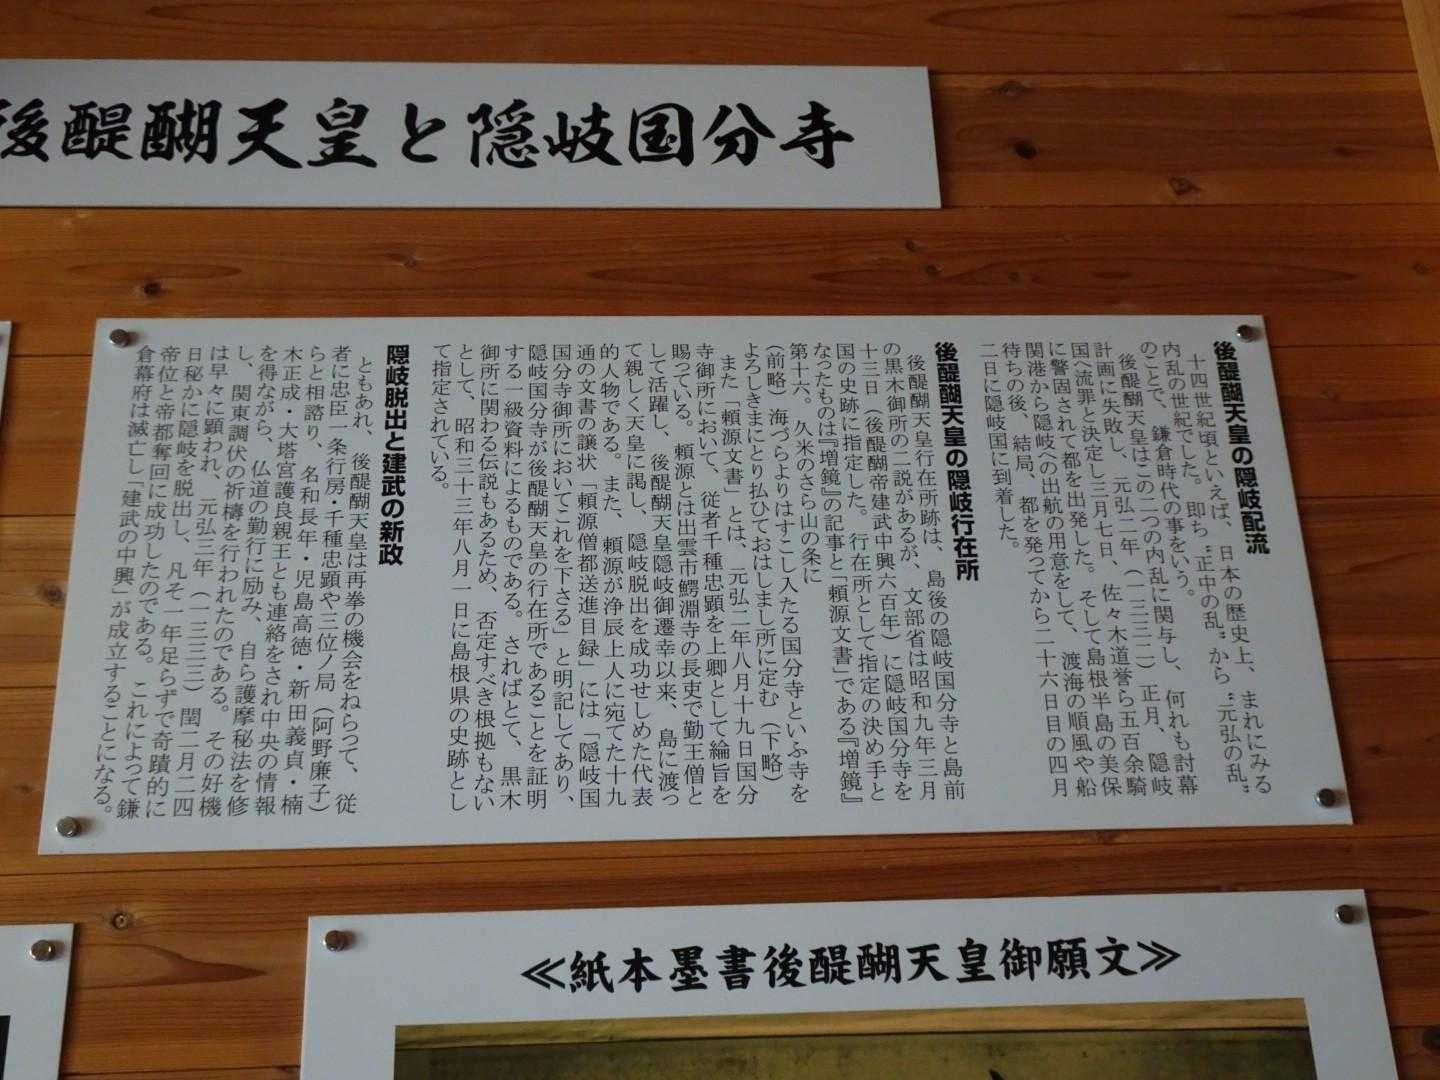 後醍醐天皇と隠岐国分寺
後醍醐天皇の隠岐配流
十四世紀頃といえば、日本の歴史上、まれにみる
内乱の世紀でした。即ち〝正中の乱〟から〝元弘の乱〟
のことで、鎌倉時代の事をいう。
後醍醐天皇はこの二つの内乱に関与し、何れも討幕
計画に失敗し、元弘二年（一三三二）正月、隠岐
国へ流罪と決定し三月七日、佐々木道誉ら五百余騎
に警固されて都を出発した。そして島根半島の美保
関港から隠岐への出航の用意をして、渡海の順風や船
待ちの後、結局、都を発ってから二十六日目の四月
二日に隠岐国に到着した。
後醍醐天皇の隠岐行在所
後醍醐天皇行在所跡は、島後の隠岐国分寺と島前
の黒木御所の二説があるが、文部省は昭和九年三月
十三日（後醍醐帝建武中興六百年）に隠岐国分寺を
国の史跡に指定した。行在所として指定の決め手と
なったものは『増鏡』の記事と「頼源文書」である『増鏡』
第十六。久米のさら山の条に
（前略）海づらよりはすこし入たる国分寺といふ寺を
よろしきまにとり払ひておはしまし所に定む（下略）
また「頼源文書」とは、元弘二年八月十九日国分
寺御所において、従者千種忠顕を上卿として綸旨を
賜っている。頼源とは出雲市鰐淵寺の長吏で勤王僧と
して活躍し、後醍醐天皇隠岐御遷幸以来、島に渡っ
て親しく天皇に謁し、隠岐脱出を成功せしめた代表
的人物である。また、頼源が浄辰上人に宛てた十九
通の文書の譲状「頼源僧都送進目録」には「隠岐国
国分寺御所においてこれを下さる」と明記してあり、
隠岐国分寺が後醍醐天皇の行在所であることを証明
する一級資料によるものである。さればとて、黒木
御所に関わる伝説もあるため、否定すべき根拠もない
として、昭和三十三年八月一日に島根県の史跡とし
て指定されている。
隠岐脱出と建武の新政
ともあれ、後醍醐天皇は再挙の機会をねらって、従
者に忠臣一条行房・千種忠顕や三位ノ局（阿野廉子）
らと相諮り、名和長年・児島高徳・新田義貞・楠
木正成・大塔宮護良親王とも連絡をされ中央の情報
を得ながら、仏道の勤行に励み、自ら護摩秘法を修
し、関東調伏の祈禱を行われたのである。その好機
は早々に顕われ、元弘三年（一三三三）閏二月二四
日秘かに隠岐を脱出し、凡そ一年足らずで奇蹟的に
帝位と帝都奪回に成功したのである。これによって鎌
倉幕府は滅亡し「建武の中興」が成立することになる。
≪紙本墨書後醍醐天皇御願文≫